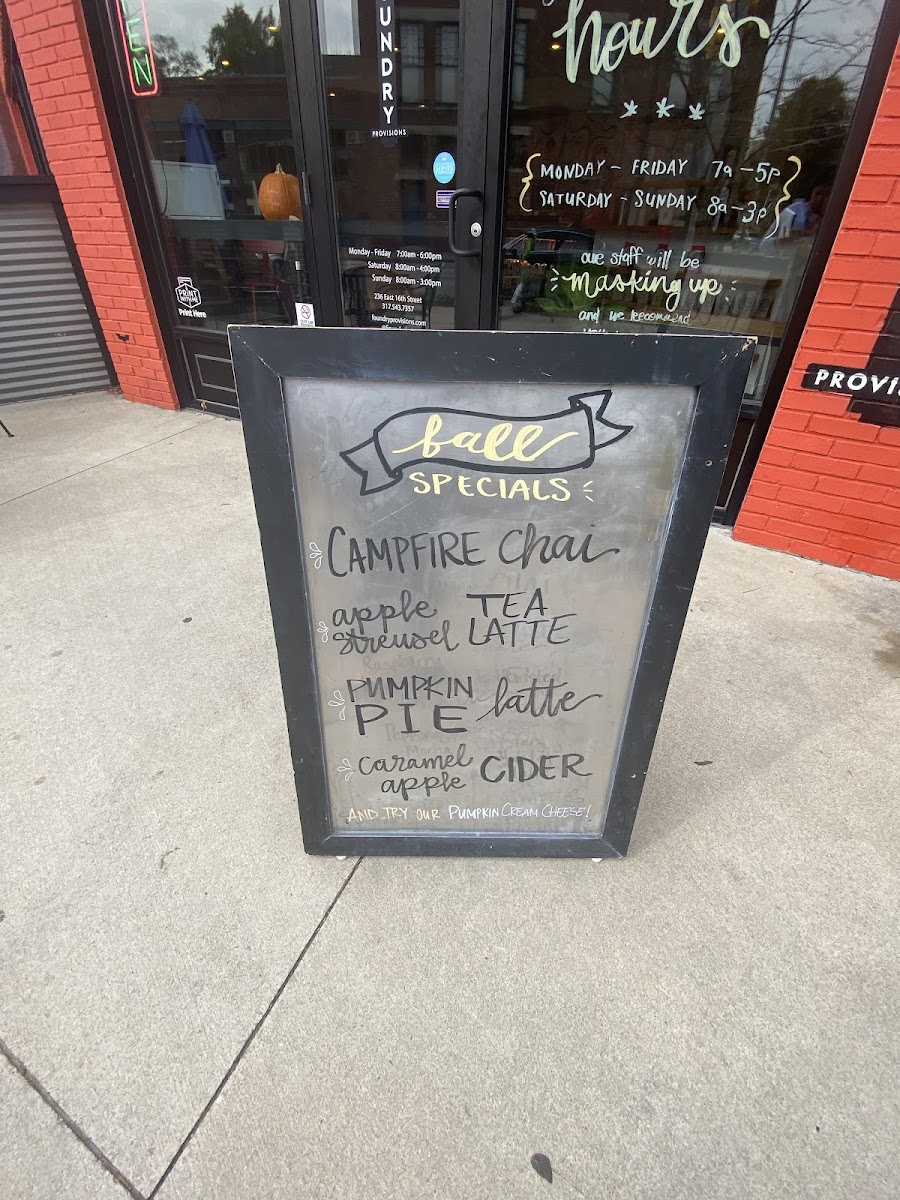 EN
UNDRY
PROVISIONS
hours
MONDAY - FRIDAY 7a-5p
SATURDAY - SUNDAY 8a-3p
our staff will be
masking up
and we recommend
Monday - Friday 7:00am - 6:00pm
Saturday 8:00am - 4:00pm
Sunday 8:00am - 3:00pm
236 East 16th Street
317.543.7357
foundryprovisions.com
PRINT
WITH ME
Print Here
PROVI
fall
SPECIALS
CAMPFIRE chai
apple streusel TEA LATTE
PUMPKIN PIE latte
caramel apple CIDER
AND TRY OUR PUMPKIN CREAM CHEESE!